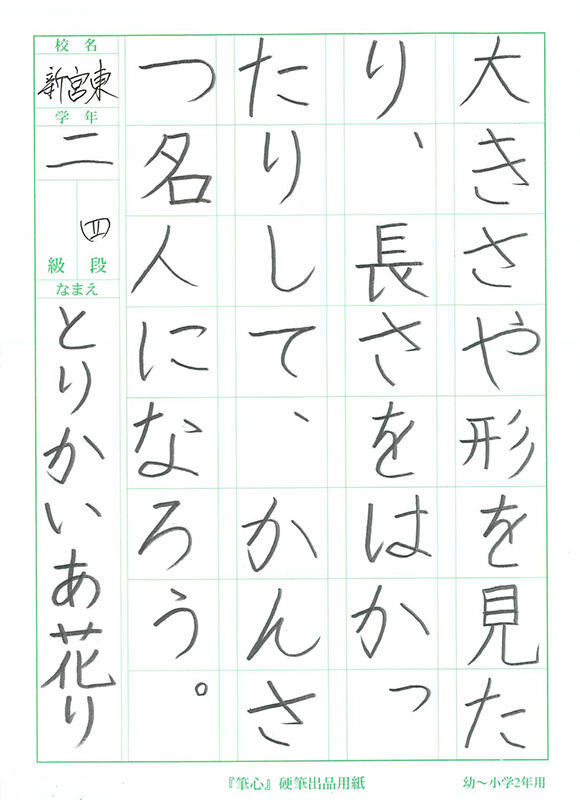 大きさや形を見た
り、長さをはかっ
たりして、かんさ
つ名人になろう。
校名
新宮東
学年
二
四
級段
なまえ
とりかいあ花り
『筆心』硬筆出品用紙
幼〜小学2年用